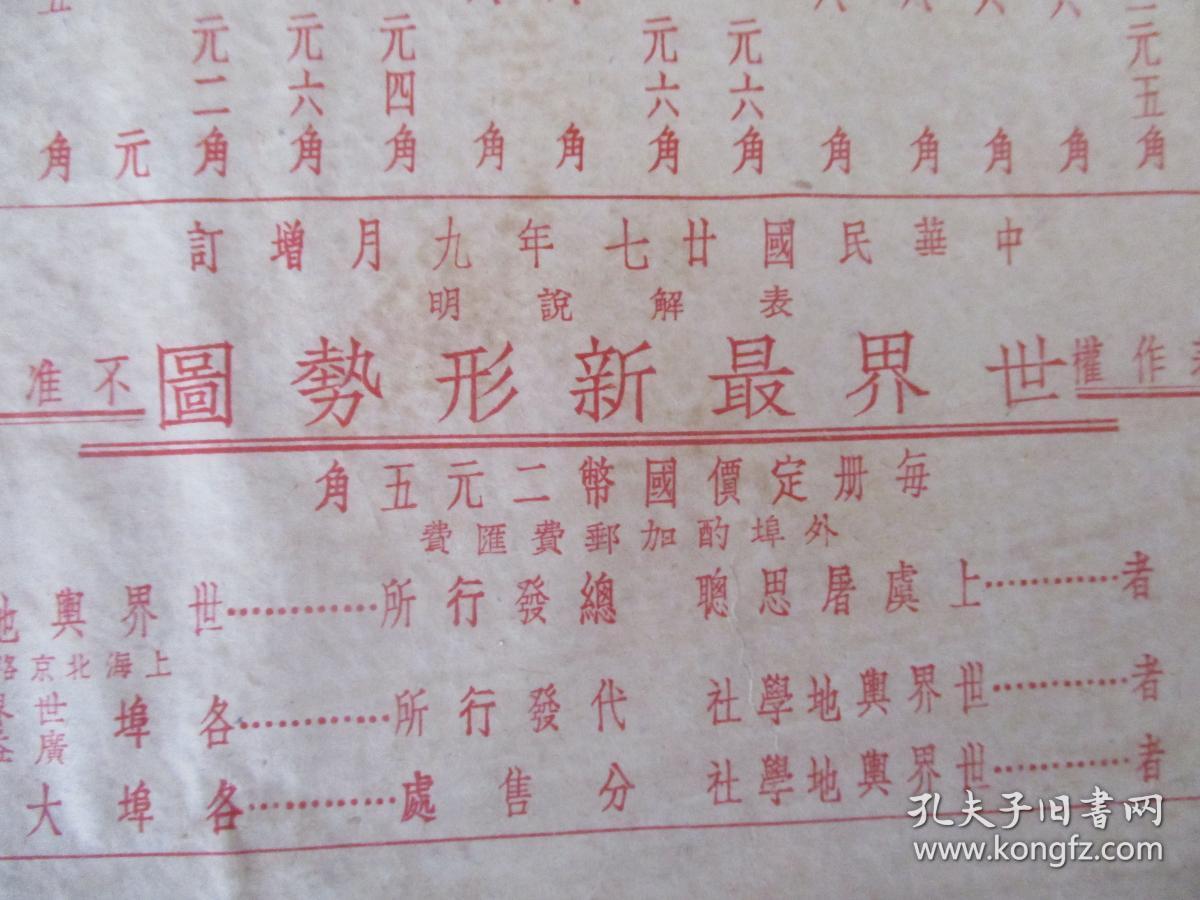 元五角
角
角
角
角
元六角
元六角
角
角
元四角
元六角
元二角
元
角
中華民國廿七年九月增訂
表解說明
作權
世界最新形勢圖
不准
每册定價國幣二元五角
外埠酌加郵費匯費
者…………上虞屠思聰
者…………世界輿地學社
者…………世界輿地學社
總發行所…………世界輿地
上海北京路
代發行所…………各埠世
廣
分售處…………各埠大
孔夫子旧书网
www.kongfz.com